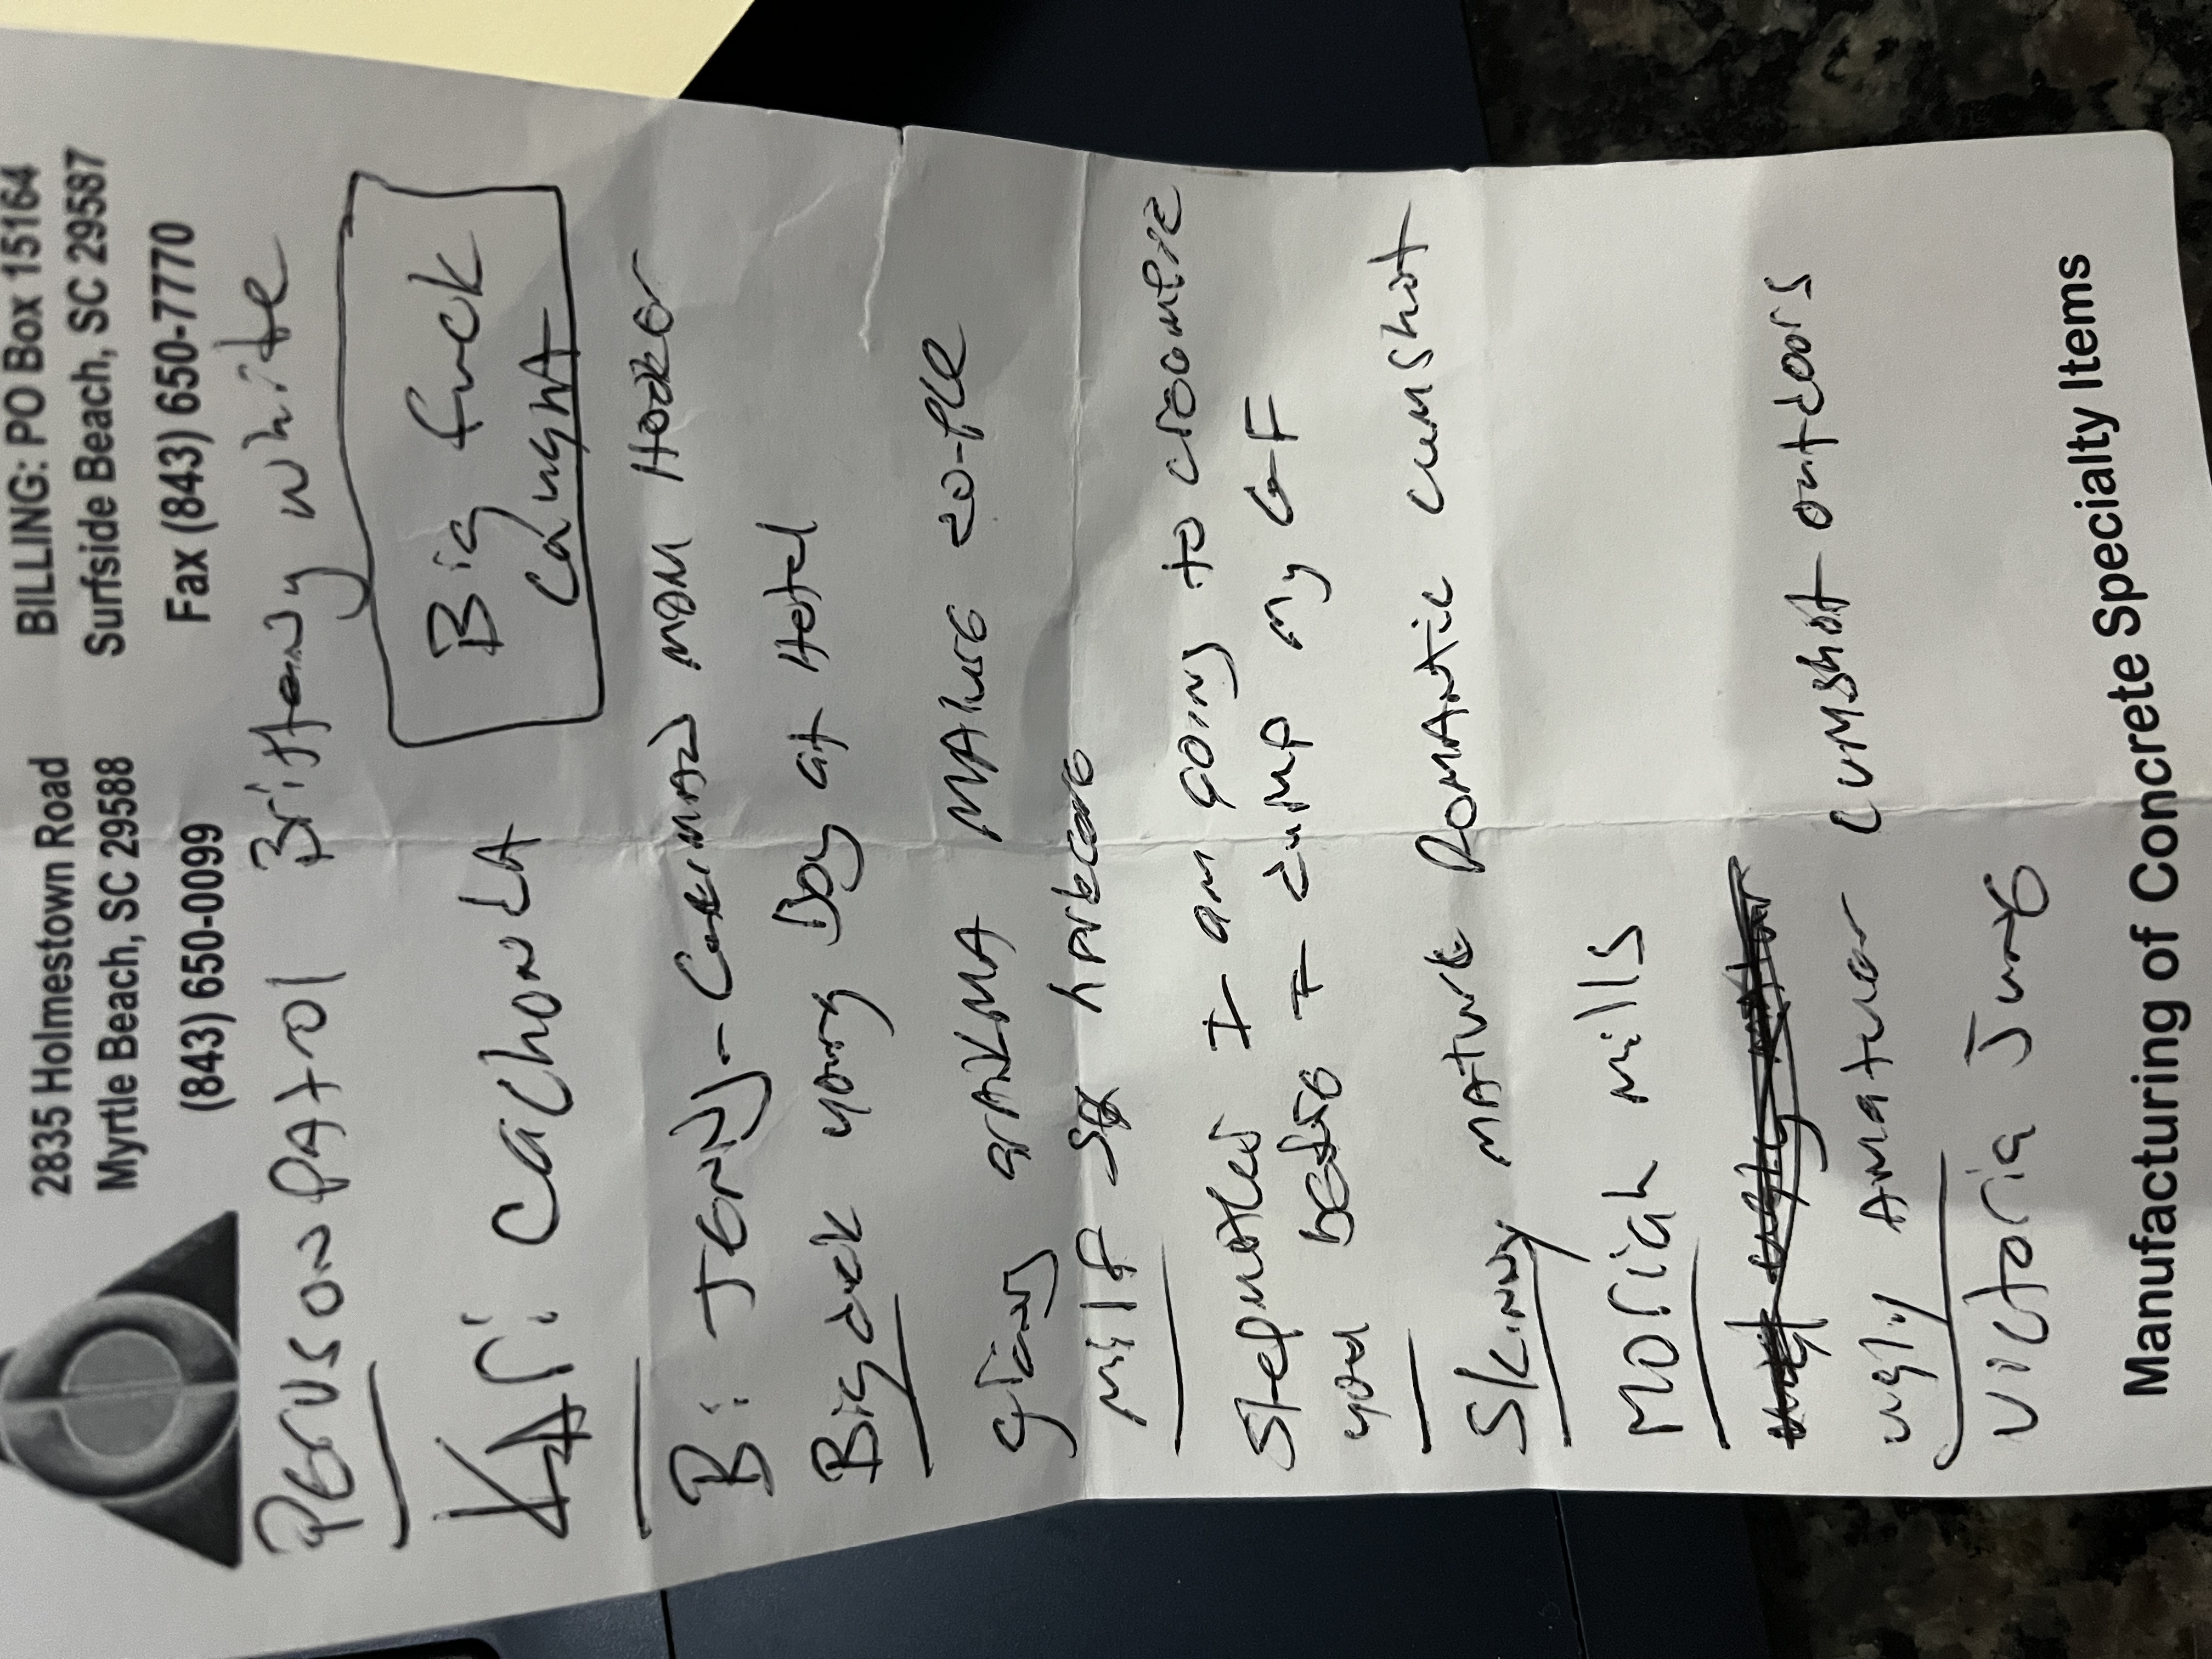 2835 Holmestown Road
Myrtle Beach, SC 29588
(843) 650-0099
BILLING: PO Box 15164
Surfside Beach, SC 29587
Fax (843) 650-7770
PERUSON PATrOl Brittany white
KAri cachonda
Big fuck
caught
Bi JENNY- mom Hooker
Big dick young Boy at Hotel
granny GRANDMA MAture
milf sex
Stepmother I am going to
you before I dump my G-F
Skinny MATURE ROMANTIC cumshot
Moriah mills
ugly Amateur cumshot outdoors
Victoria June
Manufacturing of Concrete Specialty Items